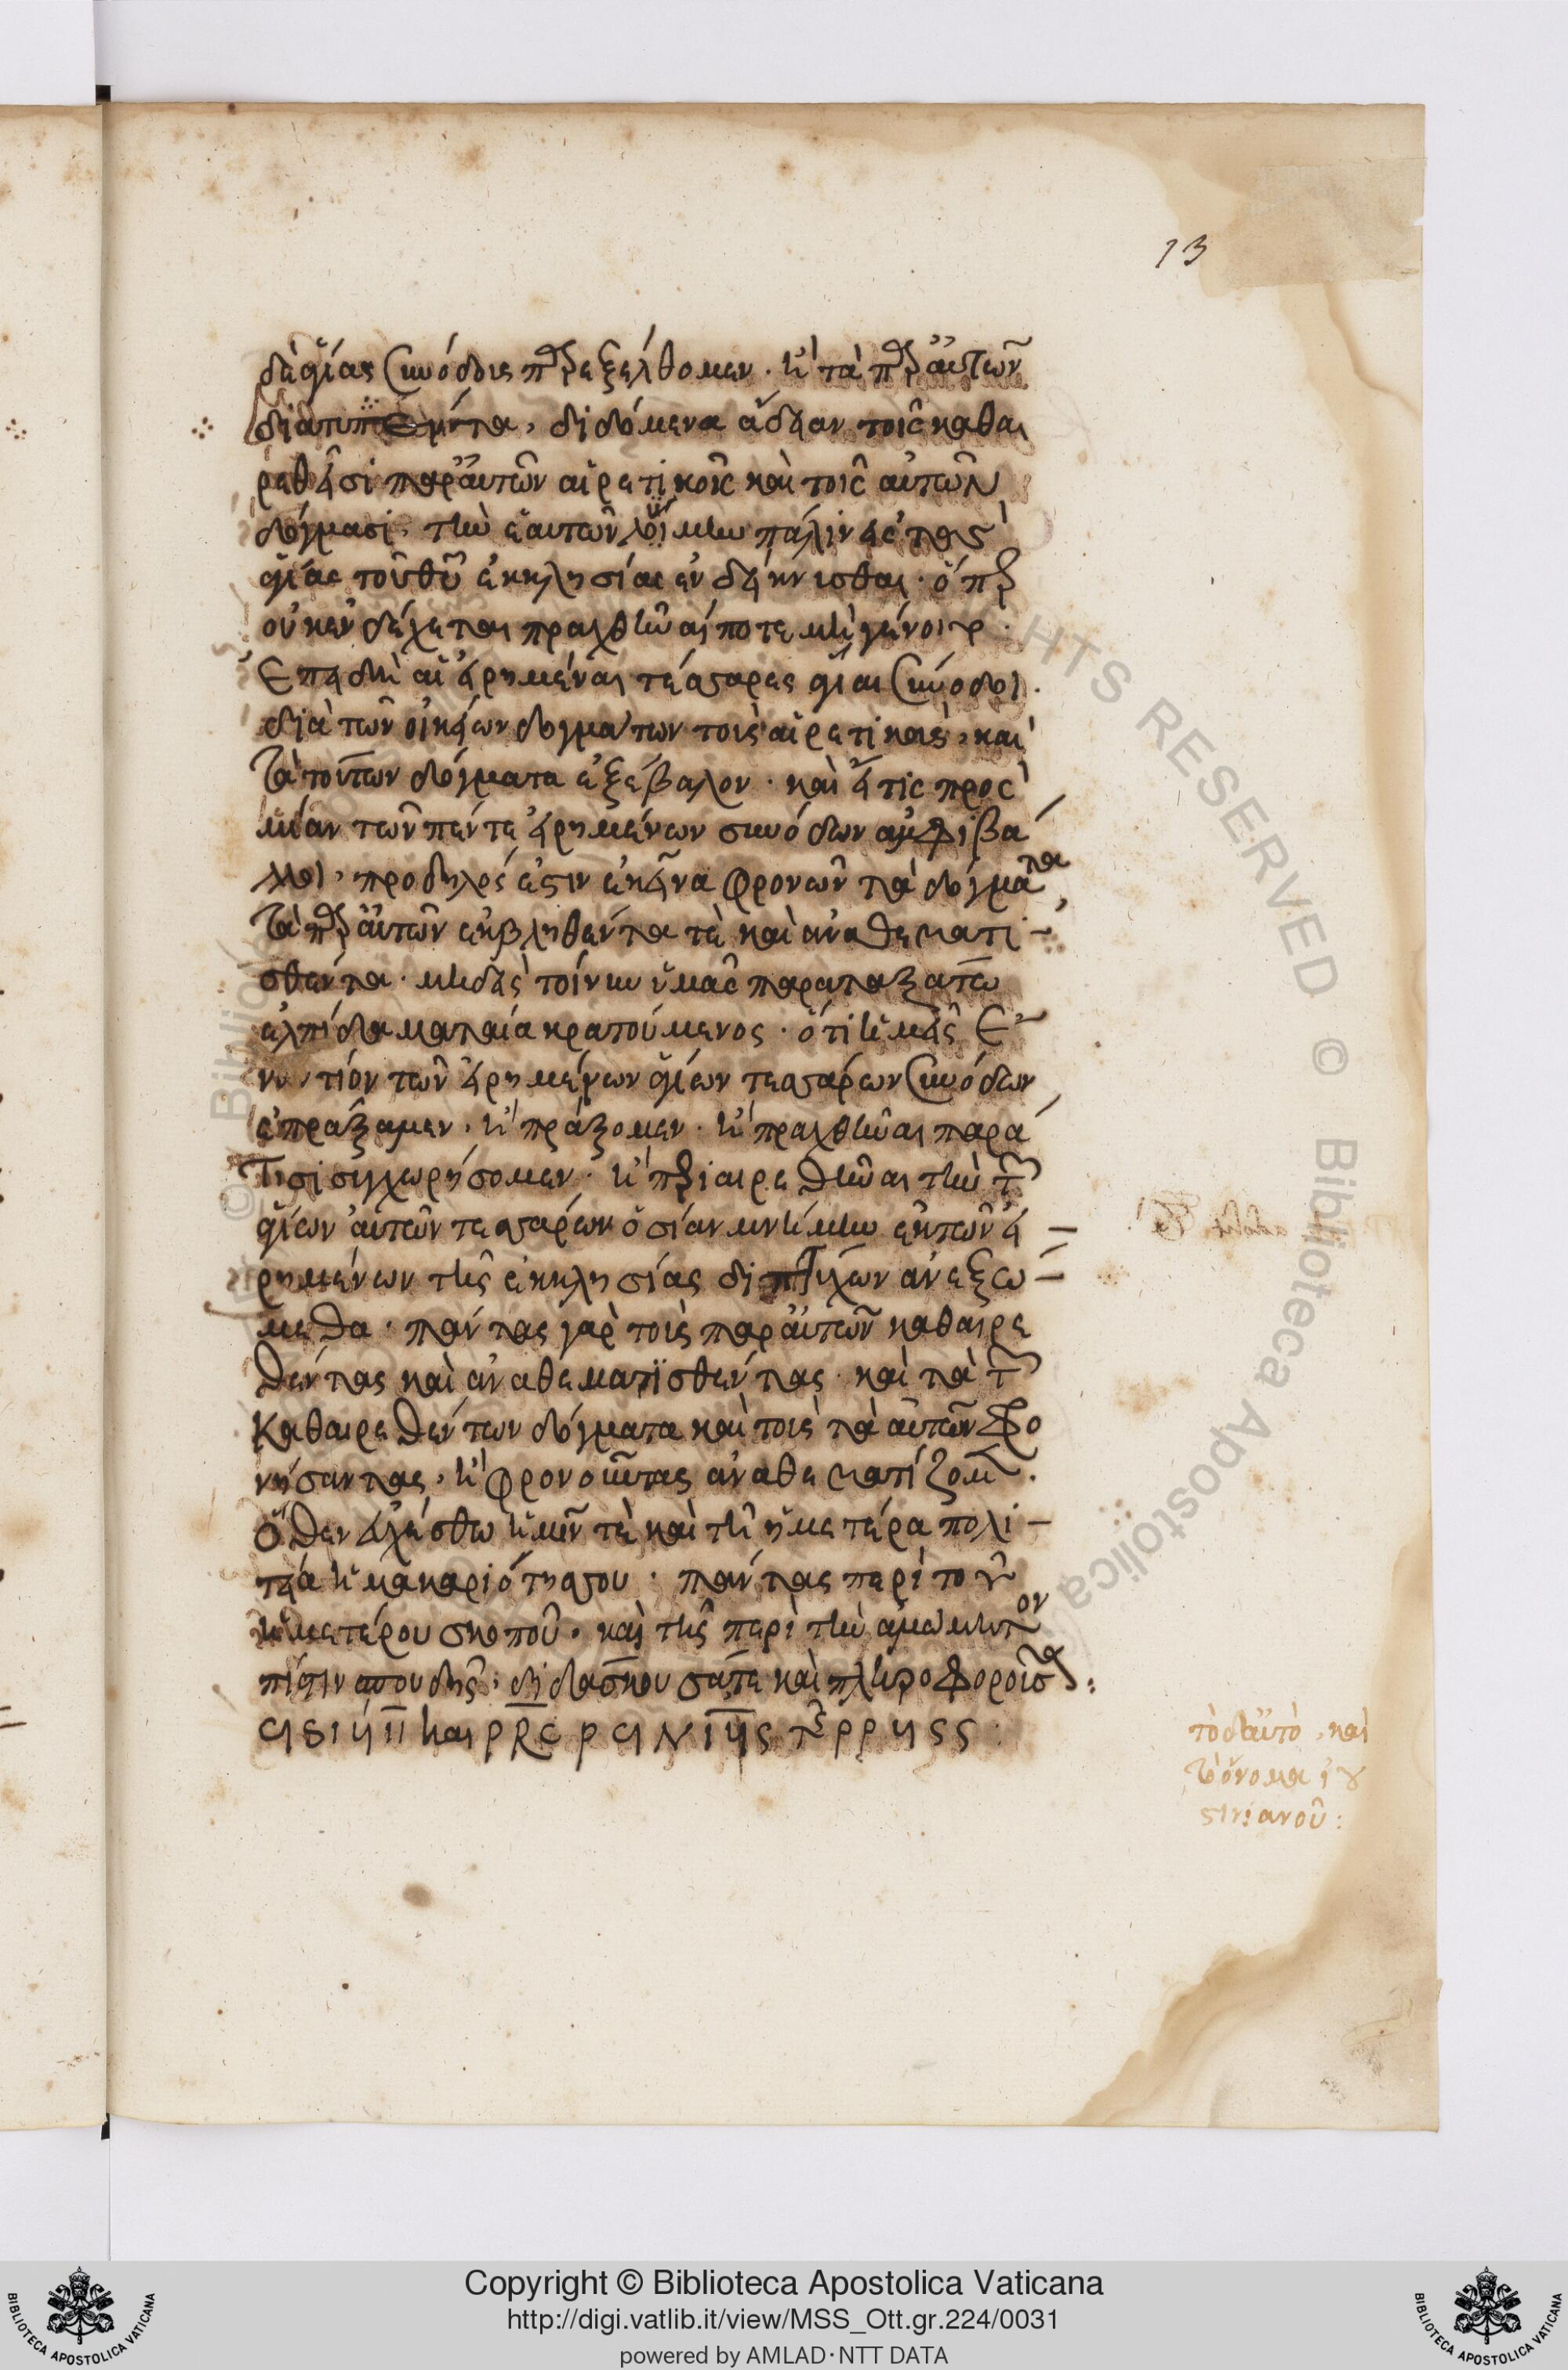 13
δὲ ἁγίας συνόδους παρεξέλθομεν. καὶ τὰ παρ' αὐτῶν
διατυπωθέντα, διδόμενα ἄδειαν τοῖς καθαι
ρεθεῖσι παρ' αὐτῶν αἱρετικοῖς καὶ τοῖς αὐτῶν
δόγμασι, τὴν ἑαυτῶν λοίμην πάλιν εἰς τὰς
ἁγίας τοῦ θυ ἐκκλησίας ἐνδείκνυσθαι. ὅπερ
οὐκ ἐνδέχεται πραχθῆναί ποτε μὴ γένοιτο.
Ἐπειδὴ αἱ εἰρημέναι τέσσαρες ἅγιαι σύνοδοι.
διὰ τῶν οἰκείων δογμάτων τοὺς αἱρετικοὺς, καὶ
τὰ τούτων δόγματα ἐξέβαλον. καὶ εἴ τις πρὸς
μίαν τῶν πέντε εἰρημένων συνόδων ἀμφιβά
λλοι, πρόδηλός ἐστιν ἐκεῖνα φρονῶν τὰ δόγματα,
τὰ παρ' αὐτῶν ἐκβληθέντα τὲ καὶ ἀναθεματι-
σθέντα. μηδεὶς τοίνυν ὑμᾶς παραταξάτω
ἐλπίδα ματαία κρατούμενος. ὅτι ἡμεῖς ἐ-
ναντίον τῶν εἰρημένων ἁγίων τεσσάρων συνόδων
ἐπράξαμεν. ἢ πράξομεν. ἢ πραχθῆναι παρά
τισι συγχωρήσομεν. ἢ περιαιρεθῆναι τὴν τῶν
ἁγίων αὐτῶν τεσσάρων ὁσίαν μνήμην ἐκ τῶν εἰ-
ρημένων τῆς ἐκκλησίας διπτύχων ἀνεξώ-
μεθα. πάντας γὰρ τοὺς παρ' αὐτῶν καθαιρε
θέντας καὶ ἀναθεματισθέντας. καὶ τὰ τῶν
καθαιρεθέντων δόγματα καὶ τοὺς τὰ αὐτῶν φρο
νήσαντας, ἢ φρονοῦντας ἀναθεματίζομεν.
ὅθεν εὐχέσθω ἡμῖν τὲ καὶ τῇ ἡμετέρα πολι-
τεία ἡ μακαριότης σου. πάντας περὶ τοῦ
ἡμετέρου σκοποῦ. καὶ τῆς περὶ τὴν ἀμώμητον
πίστιν σπουδῆς. διδασκου σάτε καὶ πληροφοροῖσθαι:
τὸ δὲ αὐτὸ, καὶ
τὸ ὄνομα ἰου
στινιανοῦ:
Copyright © Biblioteca Apostolica Vaticana
http://digi.vatlib.it/view/MSS_Ott.gr.224/0031
powered by AMLAD·NTT DATA
BIBLIOTECA APOSTOLICA VATICANA
BIBLIOTECA APOSTOLICA VATICANA